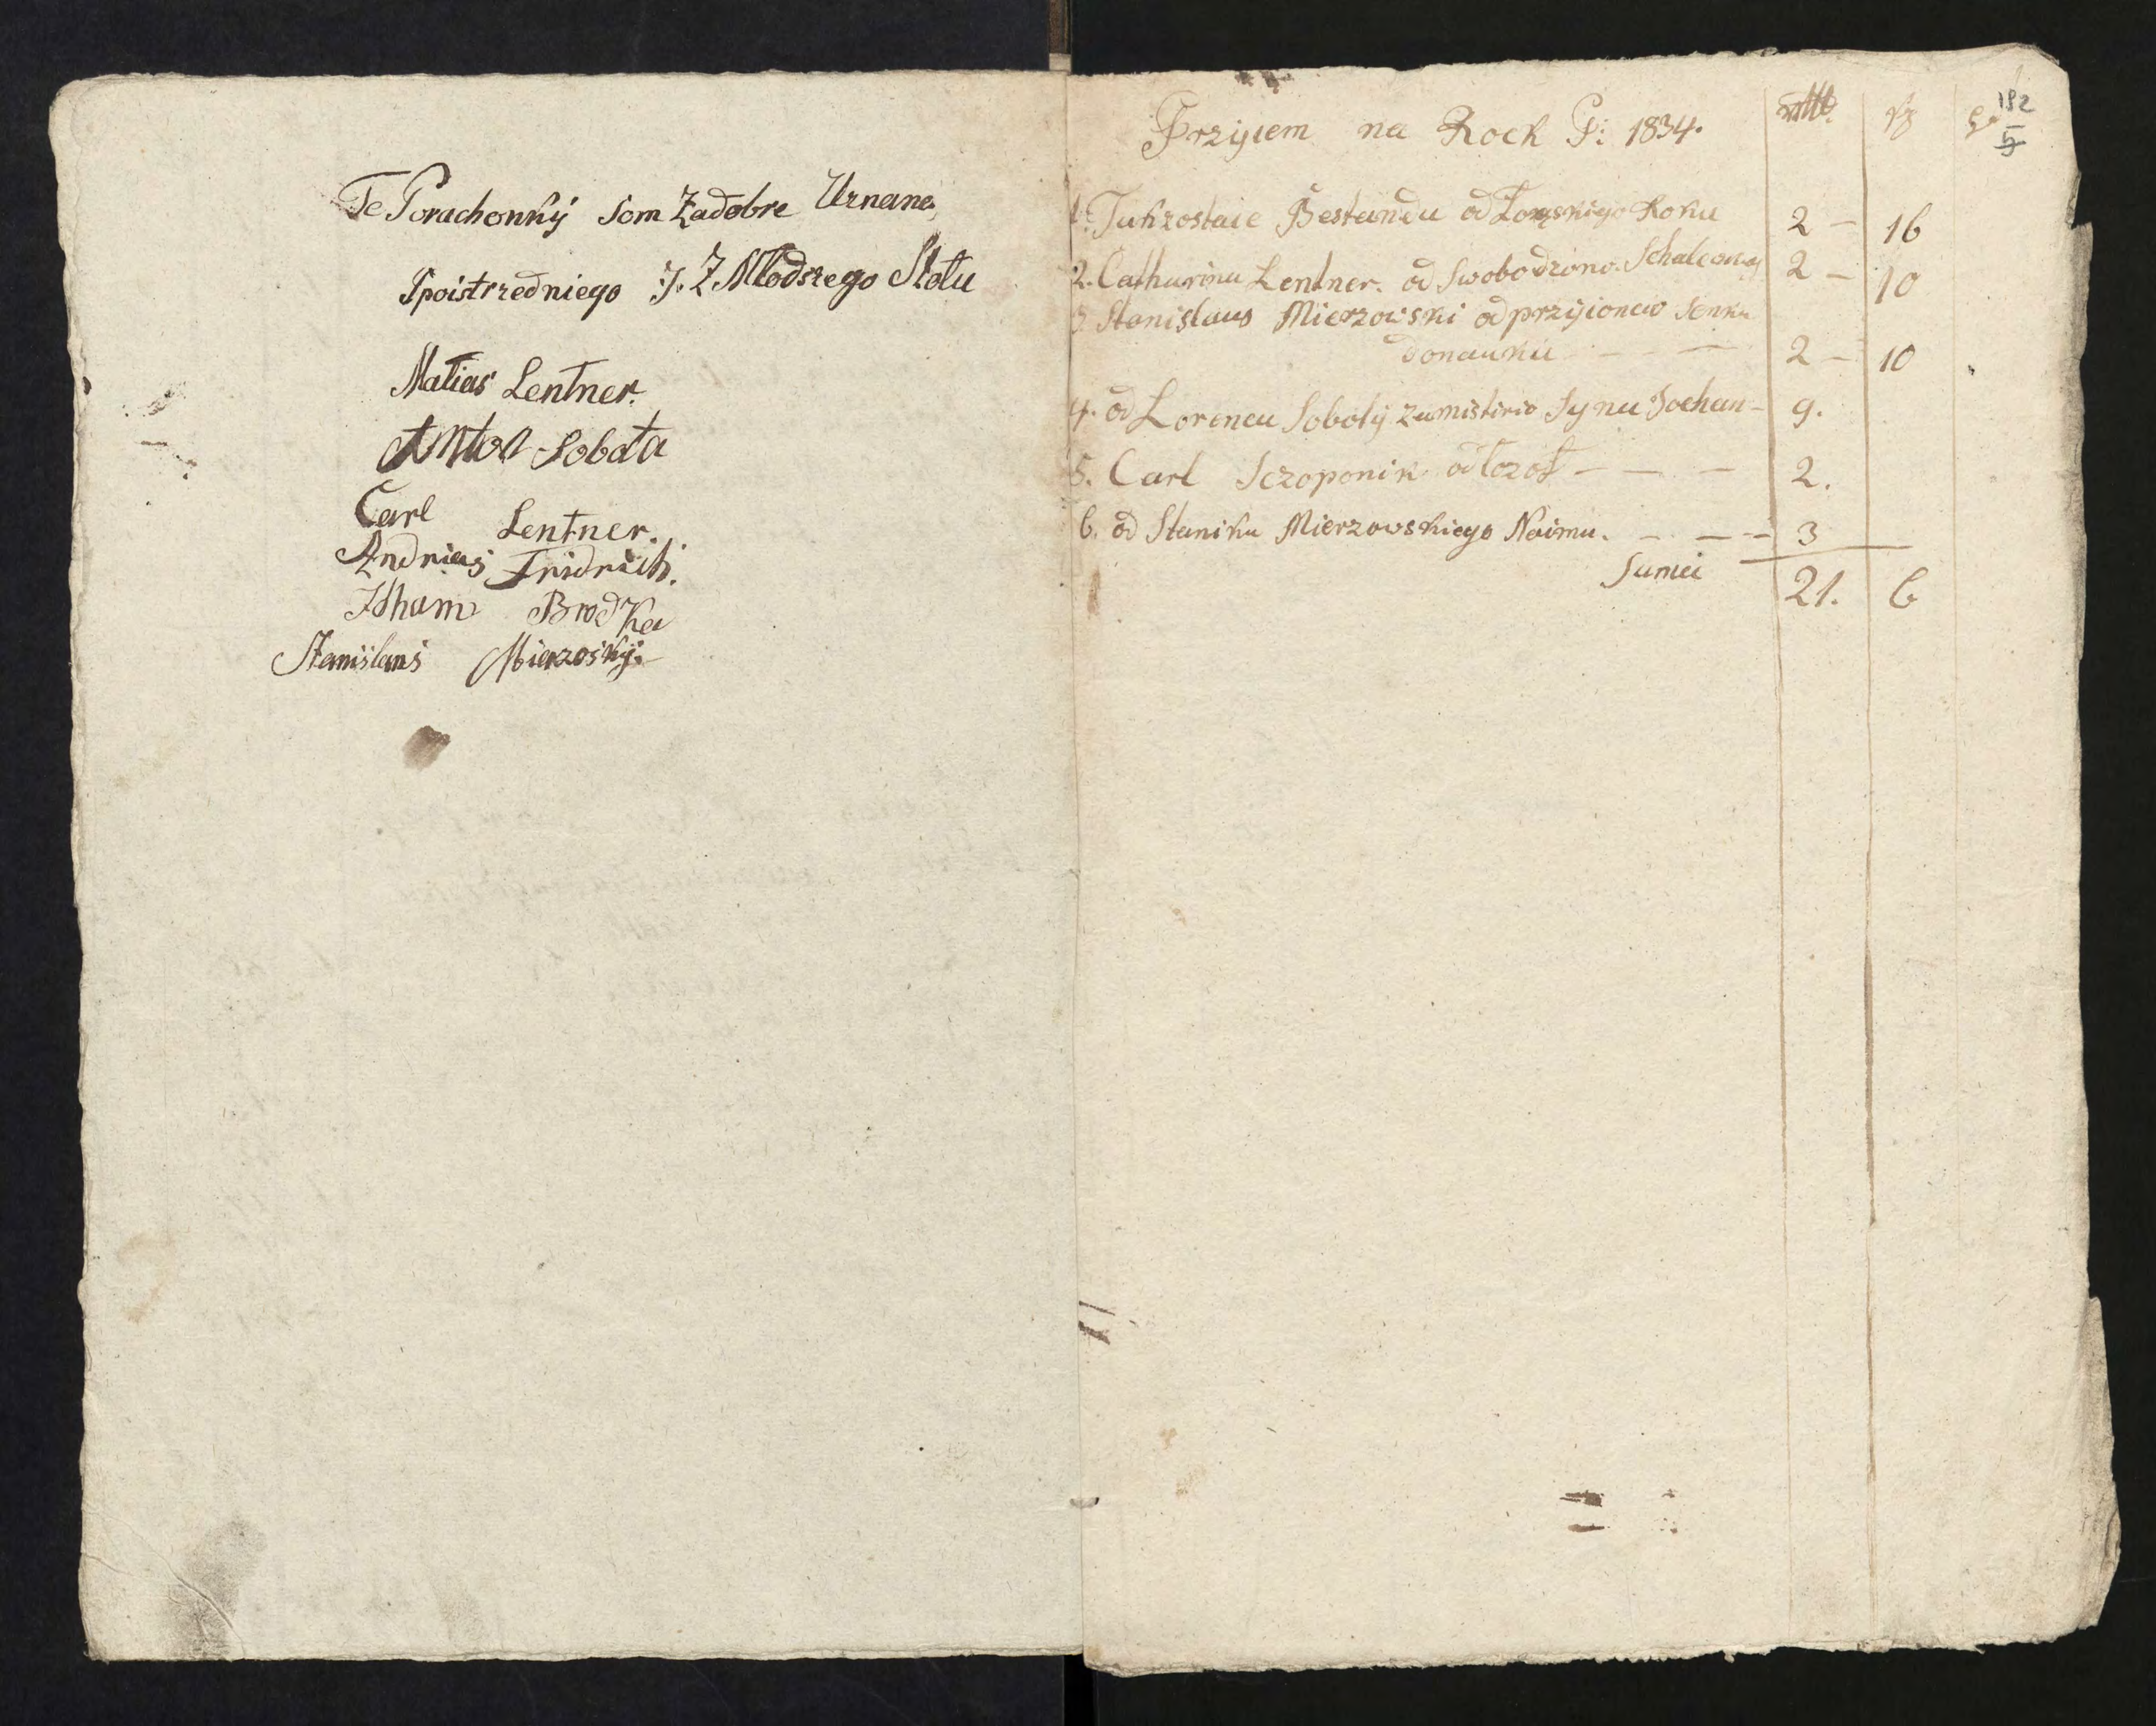 Te Porachonkÿ som Zadobre Uznane
Spoistrzedniego J. Z Młodszego Stołu
Matias Lentner.
Anton Sobota
Carl Lentner.
Andrias Fridrich.
Adham Brodka
Stanislaus Mierzoskÿ.
Przyiem na Rock P: 1834.
rttl. sg
182
5
1. Tukzostaie Bestandu od Łonskigo Roku 2 — 16
2. Catharina Lentner. od Swobodzono. 2 — 10
3. Stanislaus Mierzowski odprzyioncio Senka
donauku — — 2 — 10
4. od Lorenca Sobotÿ zamistirio Synu Johan — 9.
5. Carl Sczoponik od — — — 2.
6. od Stanika Mierzowskiego Naimu. — — — 3
Suma 21. 6